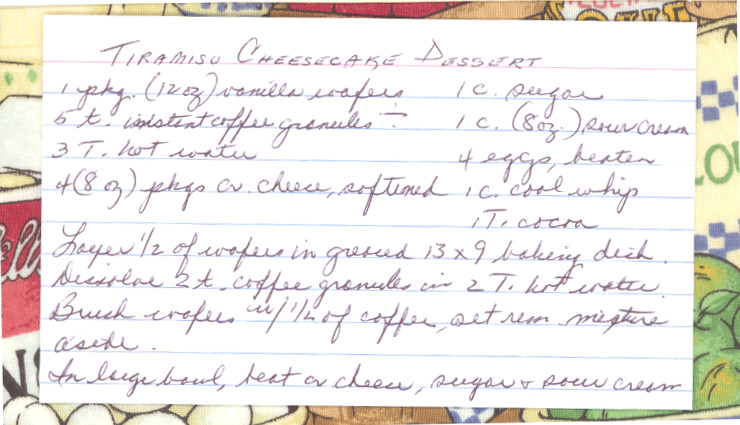 TIRAMISU CHEESECAKE DESSERT
1 pkg. (12 oz) vanilla wafers
5 t. instant coffee granules ÷
3 T. hot water
4 (8 oz) pkgs cr. cheese, softened
1 c. sugar
1 c. (8 oz.) sour cream
4 eggs, beaten
1 c. cool whip
1 T. cocoa
Layer 1/2 of wafers in greased 13 x 9 baking dish.
Dissolve 2 t. coffee granules in 2 T. hot water.
Brush wafers w/ 1/2 of coffee, set rem. mixture
aside.
In large bowl, beat cr cheese, sugar + sour cream